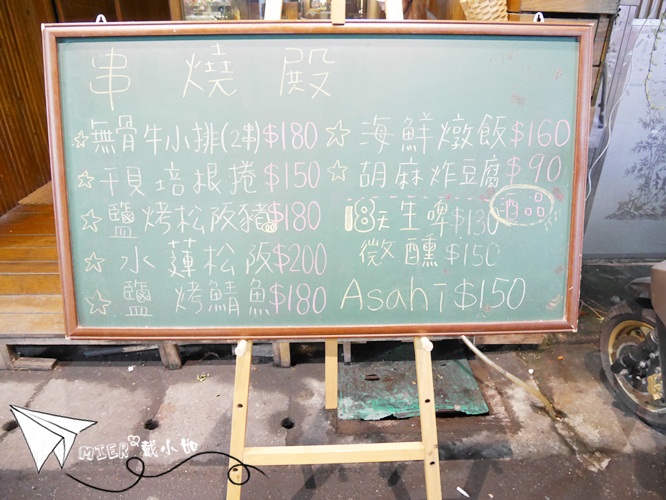 串燒殿
☆無骨牛小排(2串)$180
☆干貝培根捲$150
☆鹽烤松阪豬$180
☆水蓮松阪$200
☆鹽烤鯖魚$180
☆海鮮燉飯$160
☆胡麻炸豆腐$90
酒品
18天生啤$130
微醺$150
Asahi $150
MIER 戴小如